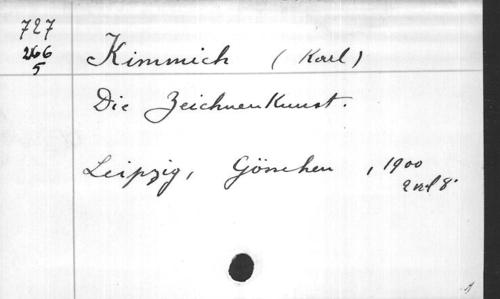 727
266
5
Kimmich (Karl)
Die Zeichnenkunst.
Leipzig, Göschen, 1900
2 vol 8°